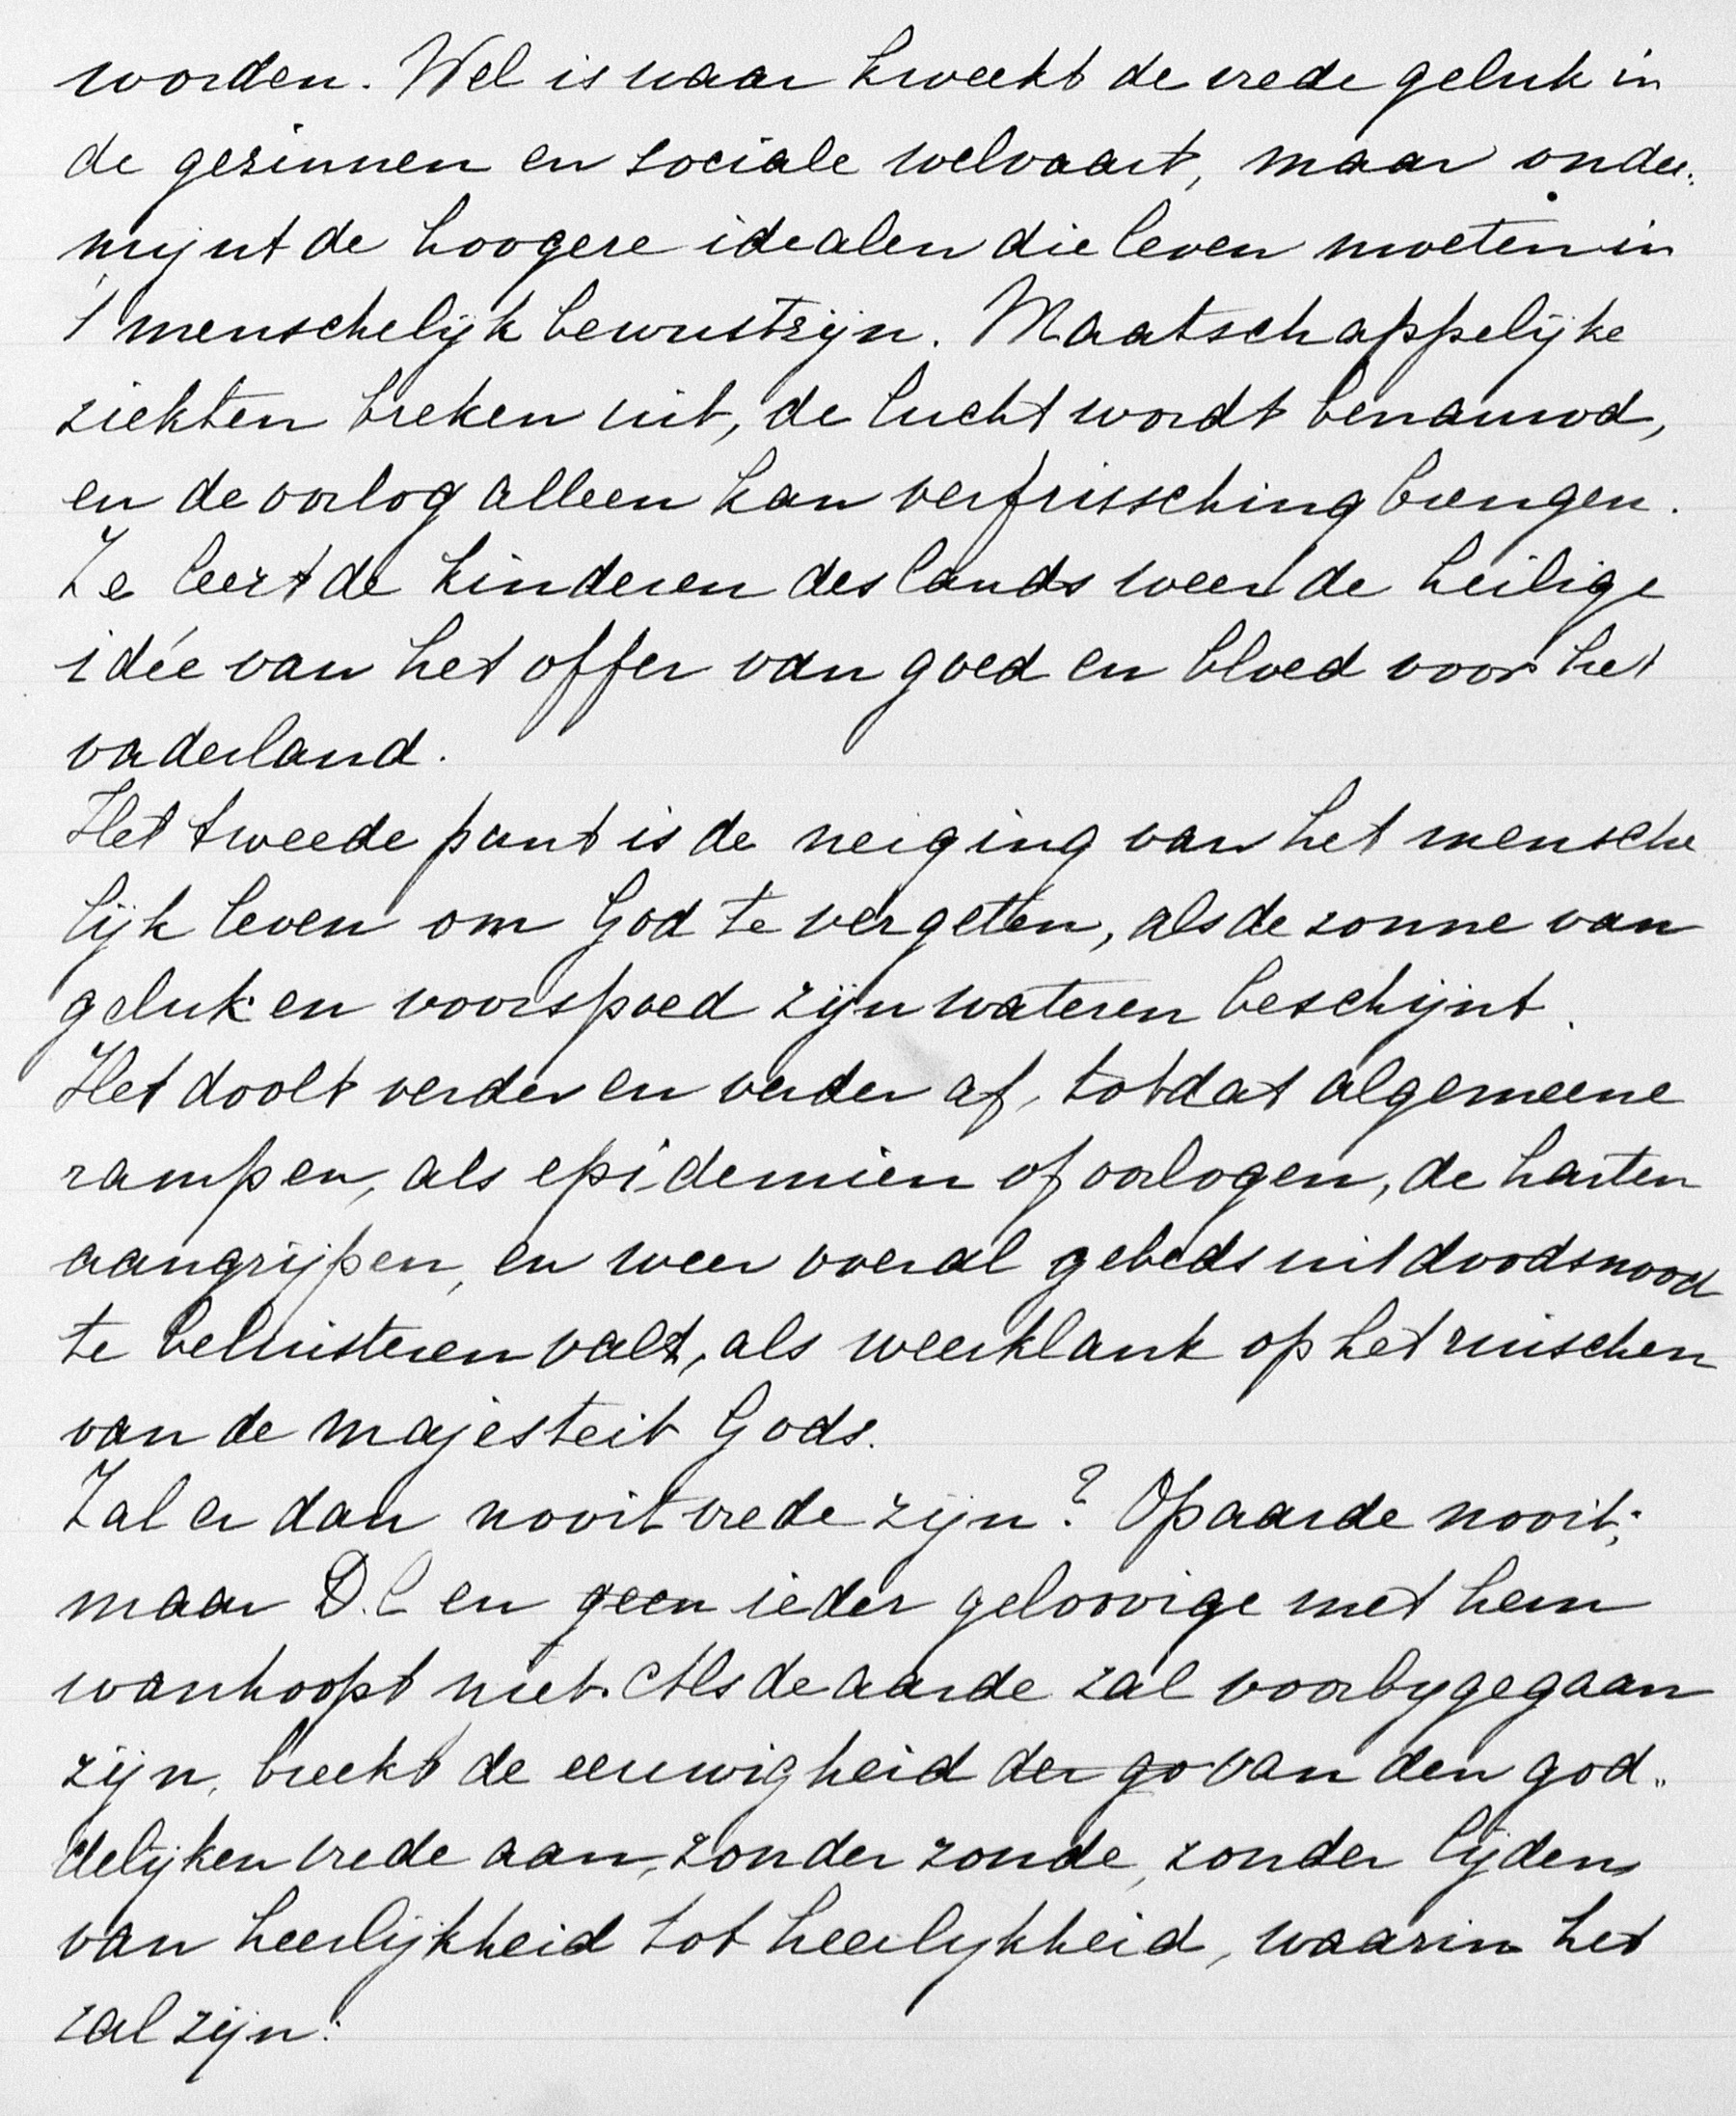 worden. Wel is waar kweekt de vrede geluk in
de gezinnen en sociale welvaart, maar onder:
mijnt de hoogere idealen die leven moeten in
't menschelijk bewustzijn. Maatschappelijke
ziekten breken uit, de lucht wordt benauwd,
en de oorlog alleen kan verfrissching brengen.
Ze leert de kinderen des lands weer de heilige
idée van het offer van goed en bloed voor het
vaderland.
Het tweede punt is de neiging van het mensche
lijk leven om God te vergeten, als de zonne van
geluk en voorspoed zijn wateren beschijnt.
Het doolt verder en verder af, totdat algemeene
rampen, als epidemien of oorlogen, de harten
aangrijpen, en weer overal gebeds uit doodsnood
te beluisteren valt, als weerklank op het ruischen
van de majesteit Gods.
Zal er dan nooit vrede zijn? Op aarde nooit;
maar D.C en geen ieder geloovige met hem
wanhoopt niet. Als de aarde zal voorbygegaan
zijn, breekt de eeuwigheid der go van den god„
delijken vrede aan, zonder zonde, zonder lijden
van heerlijkheid tot heerlykheid, waarin het
zal zijn: